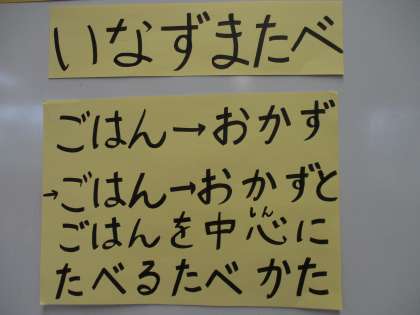 いなずまたべ
ごはん→おかず
→ごはん→おかずと
ごはんを中心に
しん
たべるたべかた